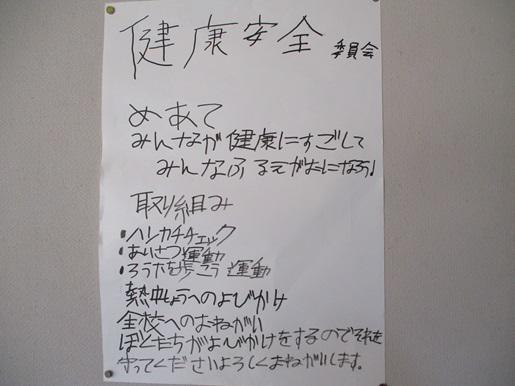 健康安全 委員会
めあて
みんなが健康にすごして
みんなふ えがおになろう!
取り組み
・ハンカチチェック
・あいさつ運動
・ろうかを歩こう運動
熱中しょうへのよびかけ
全校へのおねがい
ぼくたちがよびかけをするのでそれを
守ってくださいよろしくおねがいします。